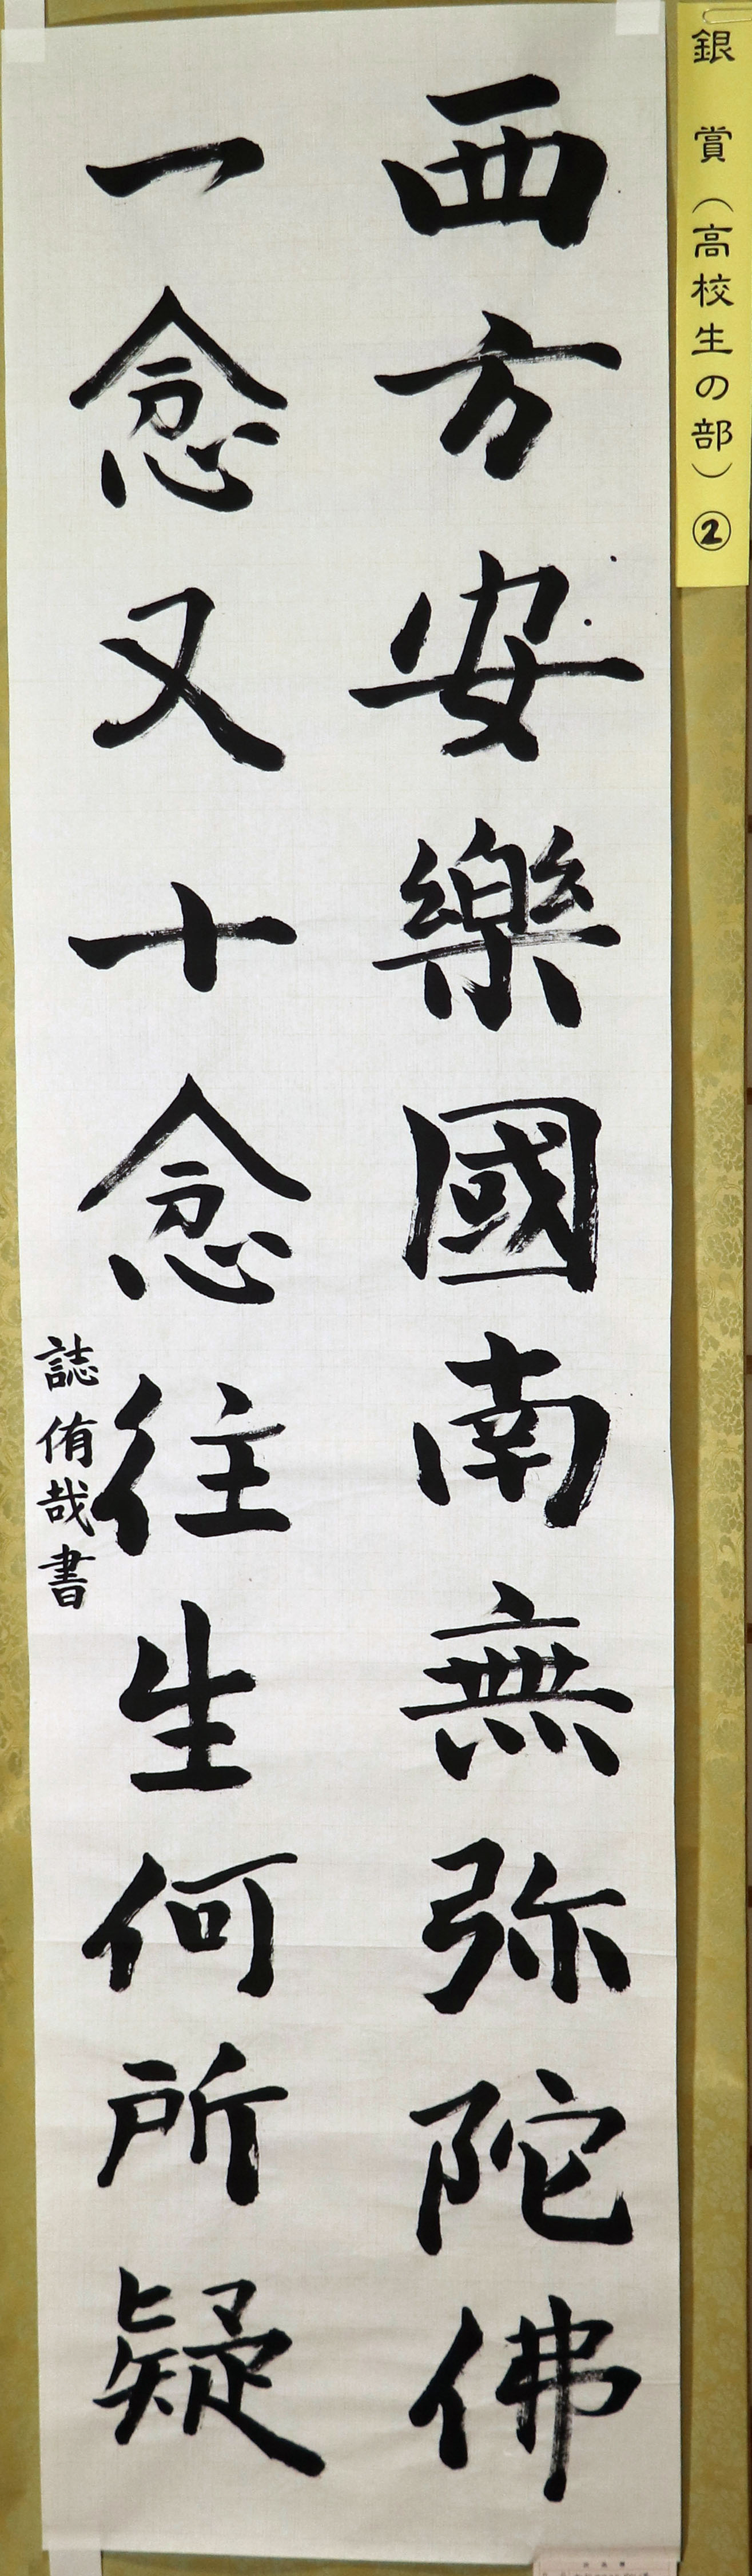 銀賞（高校生の部）②
西方安樂國南無弥陀佛
一念又十念往生何所疑
誌侑哉書